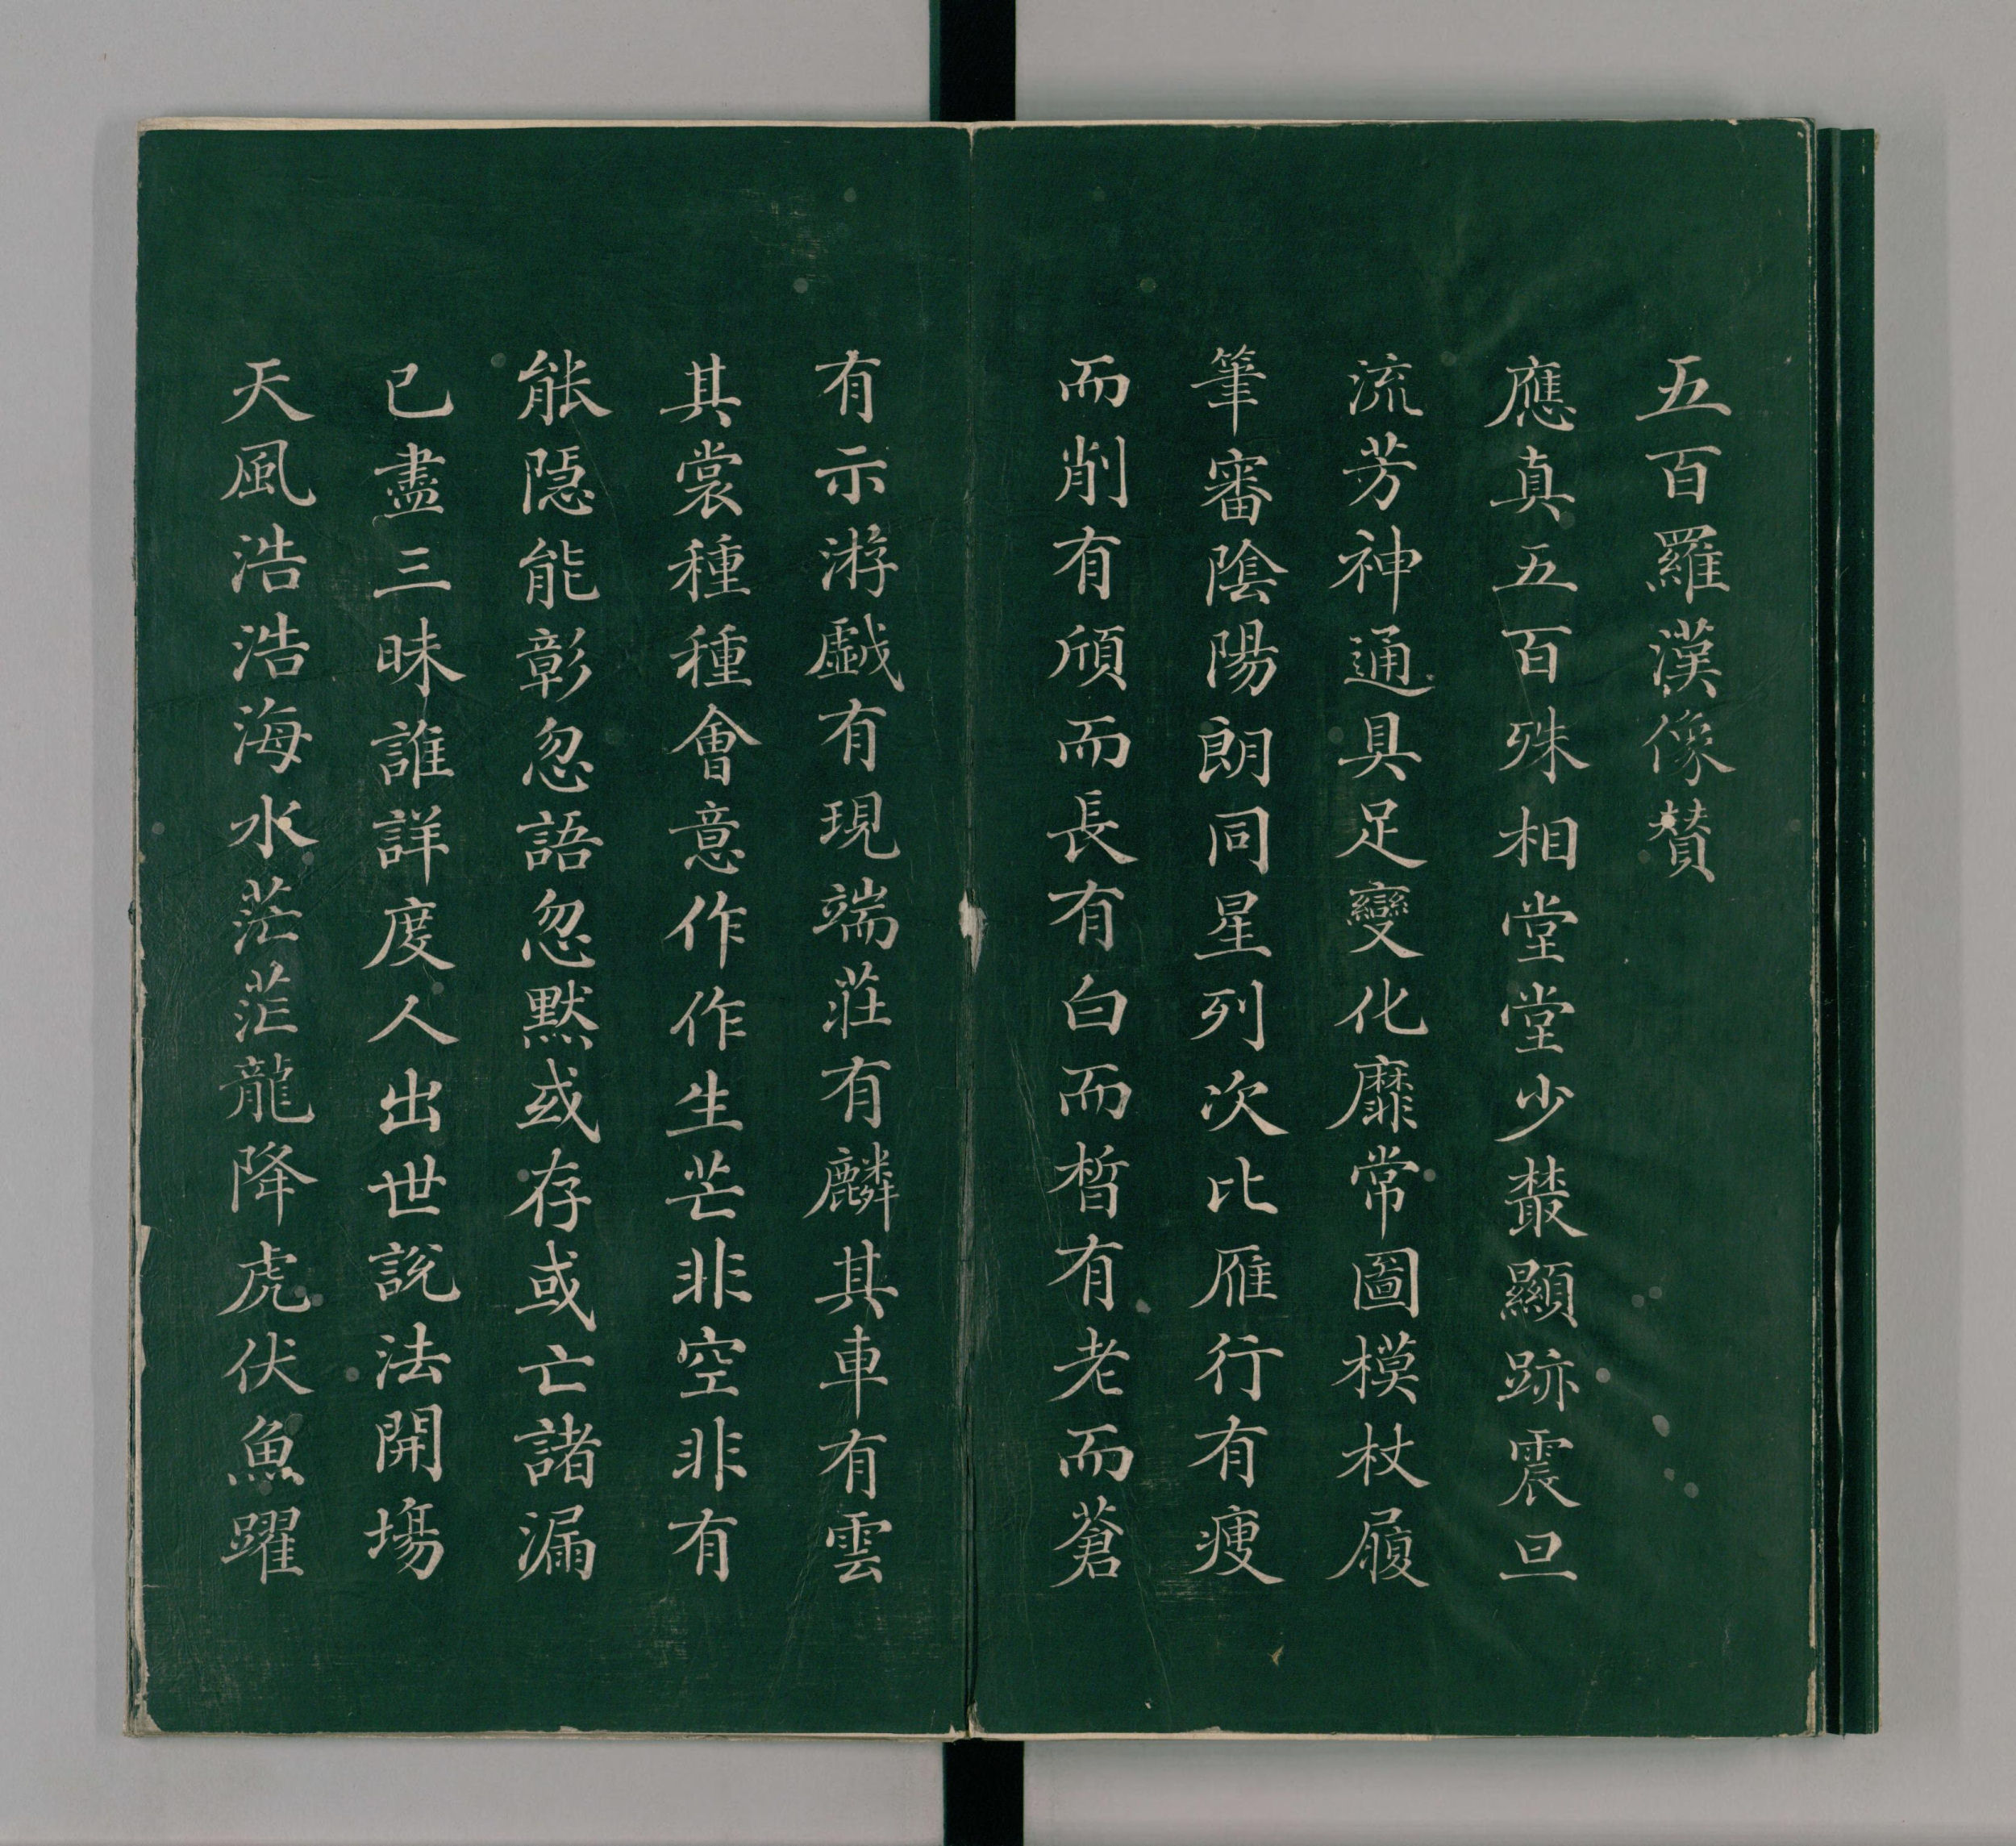 五百羅漢像賛
應真五百殊相堂堂少叢顯跡震旦
流芳神通具足變化靡常圖模杖履
筆審陰陽朗同星列次比雁行有瘦
而削有頎而長有白而晳有老而蒼
有示游戲有現端莊有麟其車有雲
其裳種種會意作作生芒非空非有
能隱能彰忽語忽默或存或亡諸漏
已盡三昧誰詳度人出世說法開場
天風浩浩海水茫茫龍降虎伏魚躍